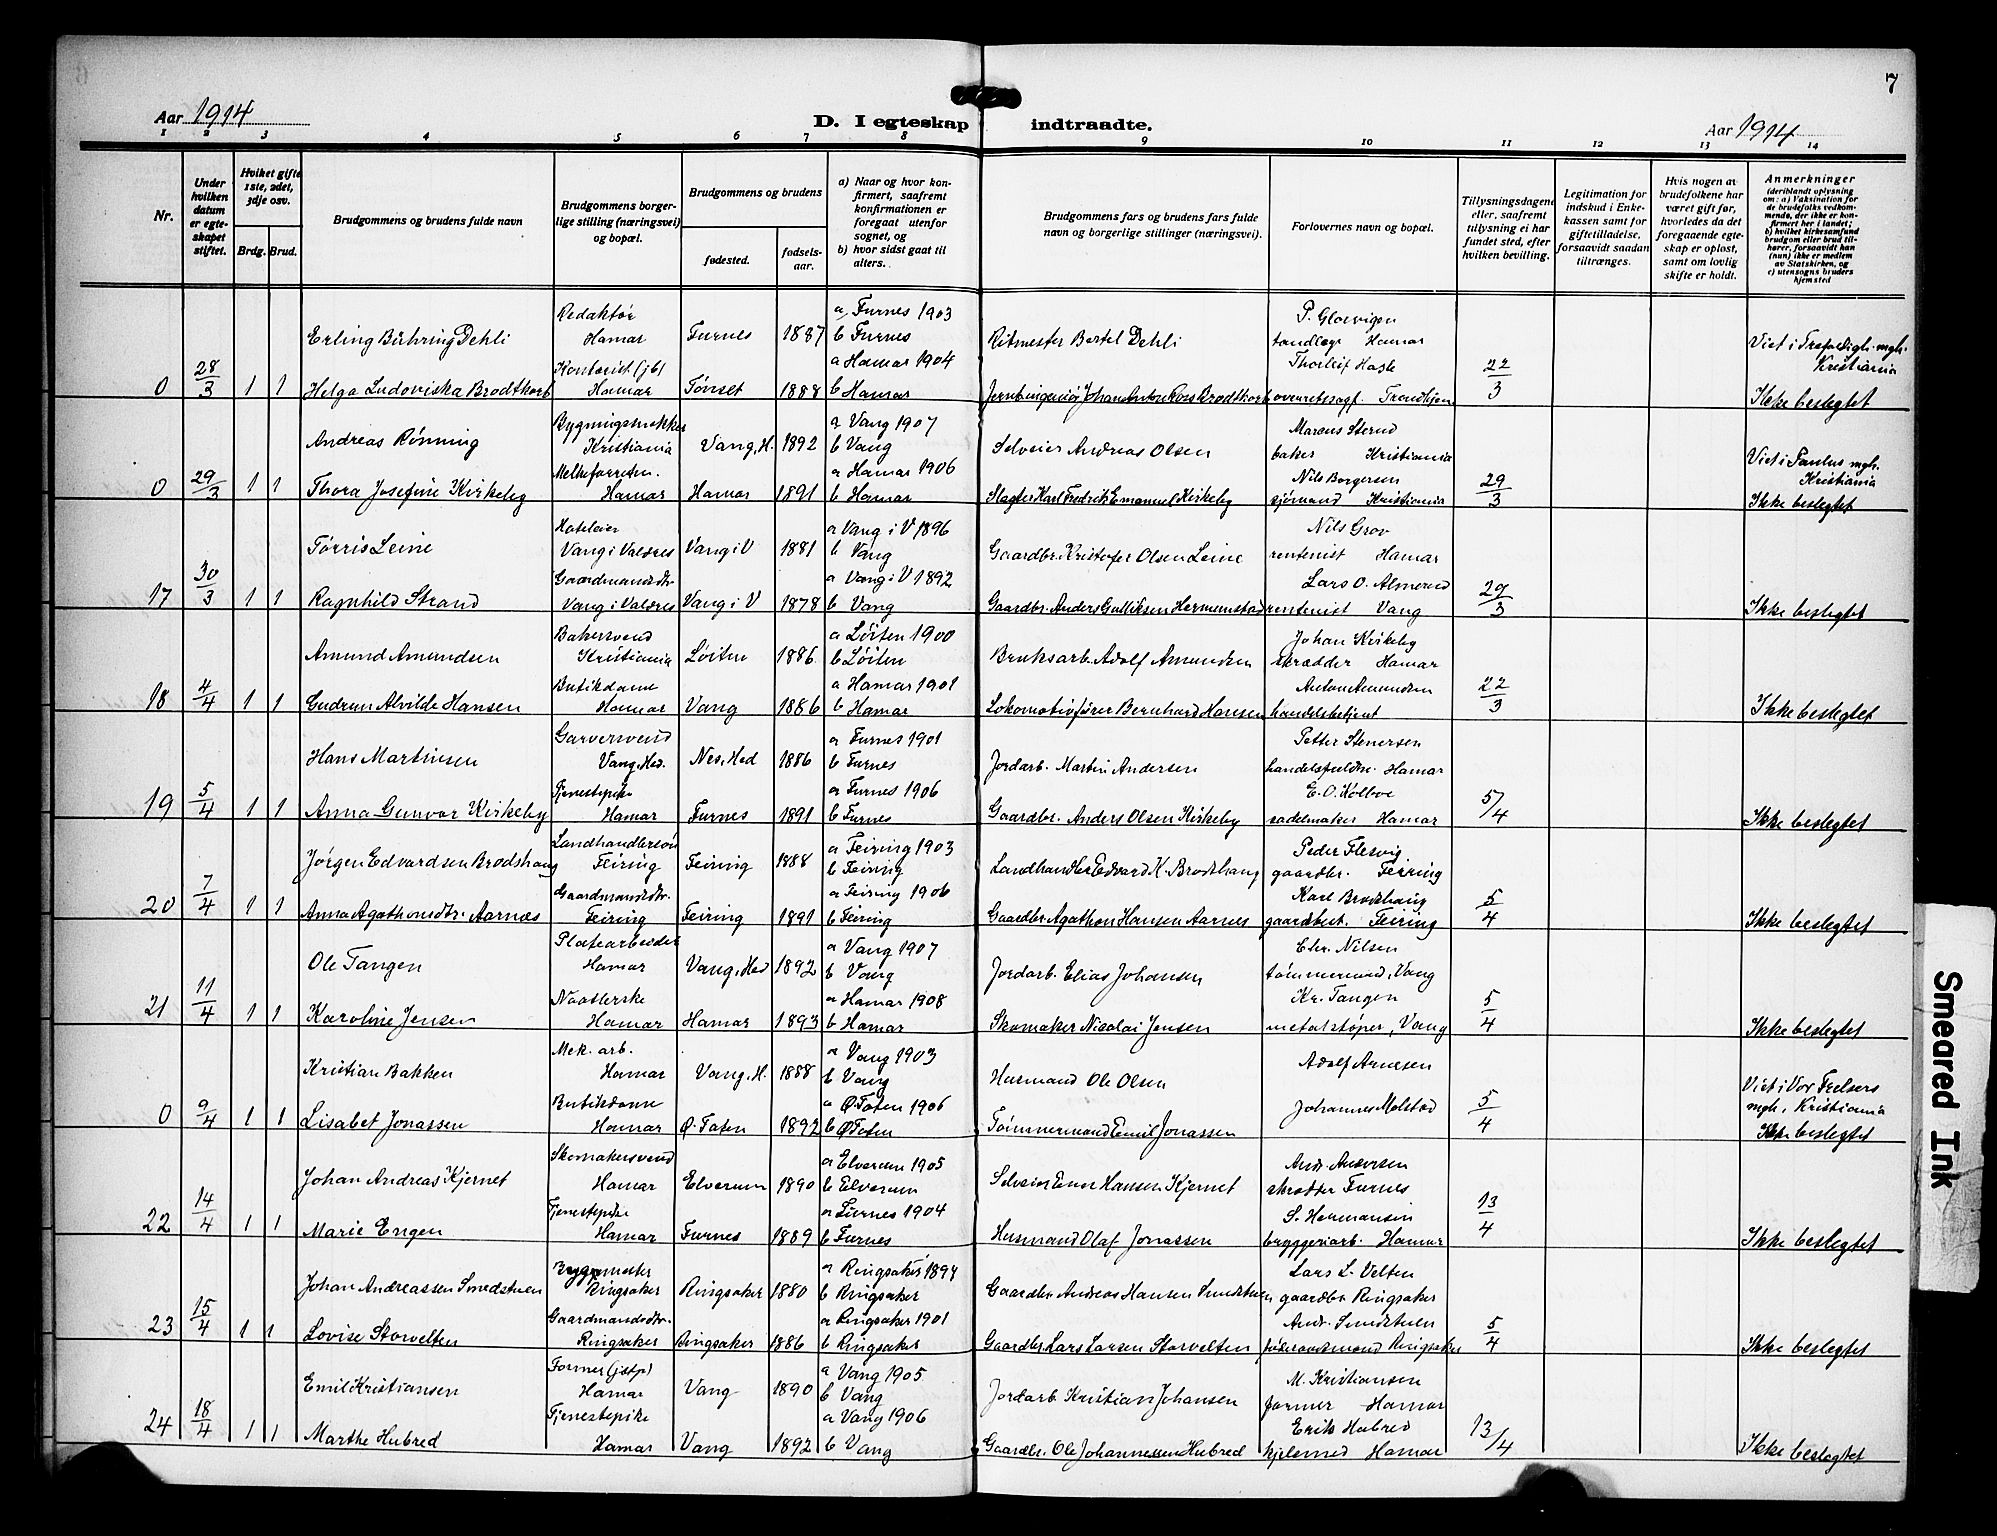 7
Aar 1914
D. I egteskap indtraadte.
Aar 1914
1 2 3 4 5 6 7 8 9 10 11 12 13 14
Nr.
Under hvilken datum er egteskapet stiftet.
Hviket gifte 1ste, 2det, 3dje osv.
Brdg. Brud.
Brudgommens og brudens fulde navn
Brudgommens borgerlige stilling (næringsvei) og bopæl.
Brudgommens og brudens
fødested. fødselsaar.
a) Naar og hvor konfirmert, saafremt konfirmationen er foregaat utenfor sognet, og
b) hvor sidst gaat til alters.
Brudgommens fars og brudens fars fulde navn og borgerlige stillinger (næringsvei).
Forlovernes navn og bopæl.
Tillysningsdagene eller, saafremt tillysning ei har fundet sted, efter hvilken bevilling.
Legitimation for indskud i Enkekassen samt for giftetilladelse, forsaavidt saadan tiltrænges.
Hvis nogen av brudefolkene har været gift før, hvorledes da det foregaaende egteskap er opløst, samt om lovlig skifte er holdt.
Anmerkninger
(deriblandt oplysning om: a) Vaksination for de brudefolks vedkommende, der ikke er konfirmert her i landet; b) hvilket kirkesamfund brudgom eller brud tilhører, forsaavidt han (hun) ikke er medlem av Statskirken, og c) utensogns bruders hjemsted
Erling Bühring Dehli Redaktør Hamar Furnes 1887 a, Furnes 1903 b Furnes Ritmester Bertel Dehli P. Glorvigen tandlæge Hamar Viet i Trefoldigh. mgh. Kristiania
0 28/3 1 1 Helga Ludoviska Brodtkorb Kontorist (jb) Hamar Tønset 1888 a Hamar 1904 b Hamar Jernb.ingeniør Johan Anton Ross Brodtkorb Thorleif Hasle overretssagf. Trondhjem 22/3 Ikke beslegtet
Andreas Rønning Bygningssnekker Kristiania Vang, H. 1892 a Vang 1907 b Vang Selveier Andreas Olsen Marcus Sterud baker Kristiania Viet i Paulus mgh. Kristiania
0 29/3 1 1 Thora Josefine Kirkeby Melkeforretn. Hamar Hamar 1891 a Hamar 1906 b Hamar Slagter Karl Fredrik Emanuel Kirkeby Nils Borgersen sjømand Kristiania 29/3 Ikke beslegtet
Tørris Leine Hoteleier Vang i Valdres Vang i V 1881 a Vang i V 1896 b Vang Gaardbr. Kristofer Olsen Leine Nils Grov rentenist Hamar
17 30/3 1 1 Ragnhild Strand Gaardmandsdtr. Vang i Valdres Vang i V 1878 a Vang i V 1892 b Vang Gaardbr. Anders Gulliksen Hermundstad Lars O. Almerud rentenist Vang 29/3 Ikke beslegtet
Amund Amundsen Bakersvend Kristiania Løiten 1886 a Løiten 1900 b Løiten Bruksarb. Adolf Amundsen Johan Kirkeby skrædder Hamar
18 4/4 1 1 Gudrun Alvilde Hansen Butikdame Hamar Vang 1886 a Hamar 1901 b Hamar Lokomotivfører Bernhard Hansen Anton Amundsen handelsbetjent 22/3 Ikke beslegtet
Hans Martinsen Garversvend Vang, Hed. Nes, Hed 1886 a Furnes 1901 b Furnes Jordarb. Martin Andersen Petter Stenersen handelsfuldm. Hamar
19 5/4 1 1 Anna Gunvor Kirkeby Tjenestepike Hamar Furnes 1891 a Furnes 1906 b Furnes Gaardbr. Anders Olsen Kirkeby E. O. Kolbve sadelmaker Hamar 5/4 Ikke beslegtet
Jørgen Edvardsen Brodshaug Landhandlersøn Feiring Feiring 1888 a Feiring 1903 b Feiring Landhandler Edvard K. Brodshaug Peder Flesvig gaardbr. Feiring
20 7/4 1 1 Anna Agathonsdtr. Aarnæs Gaardmandsdtr. Feiring Feiring 1891 a Feiring 1906 b Feiring Gaardbr. Agathon Hansen Aarnes Karl Brodshaug gaardbest. Feiring 5/4 Ikke beslegtet
Ole Tangen Platearbeider Hamar Vang, Hed 1892 a Vang 1907 b Vang Jordarb. Elias Johansen Chr. Nilsen tømmermand, Vang
21 11/4 1 1 Karoline Jensen Naatlerske Hamar Hamar 1893 a Hamar 1908 b Hamar Skomaker Nicolai Jensen Kr. Tangen metalstøper, Vang 5/4 Ikke beslegtet
Kristian Bakken Mek. arb. Hamar Vang, H. 1888 a Vang 1903 b Vang Husmand Ole Olsen Adolf Arnesen Viet i Vor Frelsers mgh, Kristiania
0 9/4 1 1 Lisabet Jonassen Butikdame Hamar Ø. Toten 1892 a Ø. Toten 1906 b Ø Toten Tømmermand Emil Jonassen Johannes Molstad 5/4 Ikke beslegtet
Johan Andreas Kjernet Skomakersvend Hamar Elverum 1890 a Elverum 1905 b Elverum Selveier Ener Hansen Kjernet Andr. Andersen skrædder Furnes
22 14/4 1 1 Marie Engen Tjenestepike Hamar Furnes 1889 a Furnes 1904 b Furnes Husmand Olaf Jonassen S. Hermansen bryggeriarb. Hamar 13/4 Ikke beslegtet
Johan Andreassen Smedstuen Byggmester Ringsaker Ringsaker 1880 a Ringsaker 1894 b Ringsaker Gaardbr. Andreas Hansen Smedstuen Lars L. Velten gaardbr Ringsaker
23 15/4 1 1 Lovise Storvelten Gaardmandsdtr. Ringsaker Ringsaker 1886 a Ringsaker 1901 b Ringsaker Gaardbr. Lars Larsen Storvelten Andr. Smedstuen føderaadsmand Ringsaker 5/4 Ikke beslegtet
Emil Kristiansen Former (jstp) Hamar Vang 1890 a Vang 1905 b Vang Jordarb Kristian Johansen M. Kristiansen former Hamar
24 18/4 1 1 Marthe Hubred Tjenestepike Hamar Vang 1892 a Vang 1906 b Vang Gaardbr. Ole Johannessen Hubred Erik Hubred kjelsmed Hamar 13/4 Ikke beslegtet
Smeared Ink